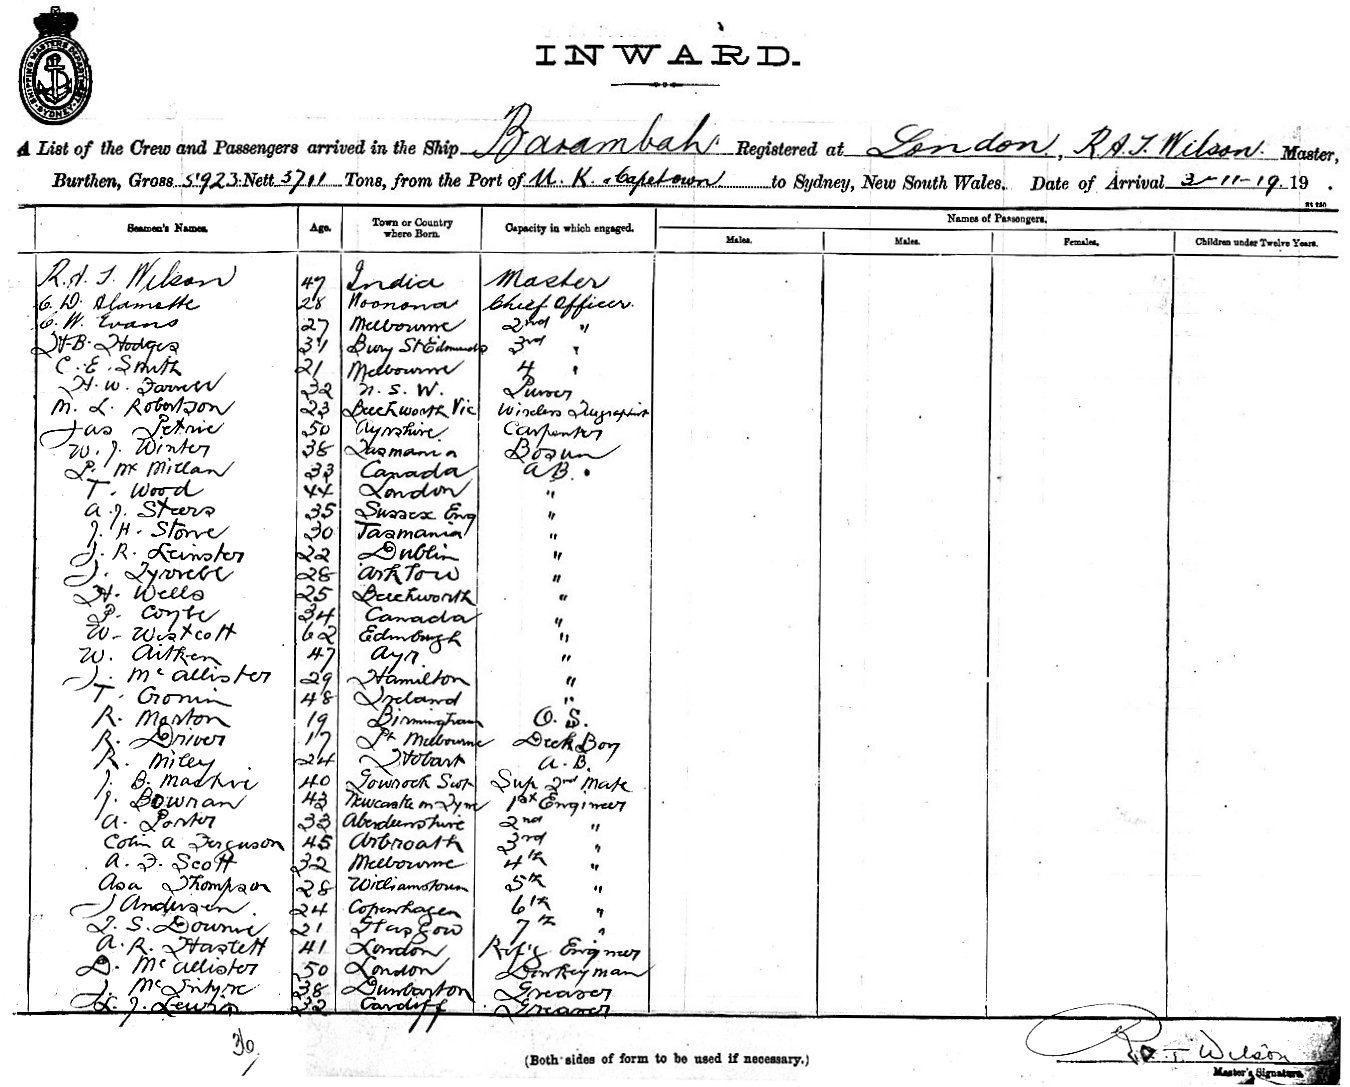 SHIPPING MASTER'S DEPARTMENT SYDNEY
INWARD.
A List of the Crew and Passengers arrived in the Ship Barambah Registered at London, R.A.J. Wilson. Master,
Burthen, Gross 5923 Nett 3711 Tons, from the Port of U. K. Capetown to Sydney, New South Wales. Date of Arrival 3-11-19. 19 .
Seamen's Names. Age. Town or Country where Born. Capacity in which engaged. Names of Passengers.
Males. Males. Females. Children under Twelve Years.
R.A. J. Wilson 47 India Master
28 Chief Officer.
C. W. Evans 27 Melbourne 2nd "
H.B. Hodges 31 Bury St Edmunds 3rd "
C. E. Smith 21 Melbourne 4 "
H. W. Farrer 32 N. S. W. Purser
M. L. Robertson 23 Beechworth Vic Wireless Telegraphist
Jas Petrie 50 Ayrshire Carpenter
W. J. Winter 38 Tasmania Bosun
P. McMillan 33 Canada A B.
T. Wood 44 London "
A. J. Steers 35 Sussex Eng "
J. H. Stone 30 Tasmania "
J. R. Leinster 22 Dublin "
J. 28 Arklow "
H. Wells 25 Beechworth "
P. Coyle 34 Canada "
W. Westcott 62 Edinburgh "
W. Aitken 47 Ayr. "
J. McAllister 29 Hamilton "
T. Cronin 48 Ireland "
R. Marton 19 Birmingham O. S.
R. Driver 17 Pt Melbourne Deck Boy
R. Miley 24 Hobart A. B.
J. B. 40 Gowrock Scot Sup 2nd Mate
J. Bowran 43 Newcastle on Tyne 1st Engineer
A. Porter 33 Aberdeenshire 2nd "
Colin A Ferguson 45 Arbroath 3rd "
A. F. Scott 32 Melbourne 4th "
Asa Thompson 28 Williamstown 5th "
J Andersen. 24 Copenhagen 6th "
J. S. Downie 21 Glasgow 7th "
A. R. Haslett 41 London Refg Engineer
D. McAllister 50 London Donkeyman
J. McIntyre 38 Dunbarton Greaser
L. J. Lewis 32 Cardiff Greaser
36
(Both sides of form to be used if necessary.)
R A J. Wilson
Master's Signature.